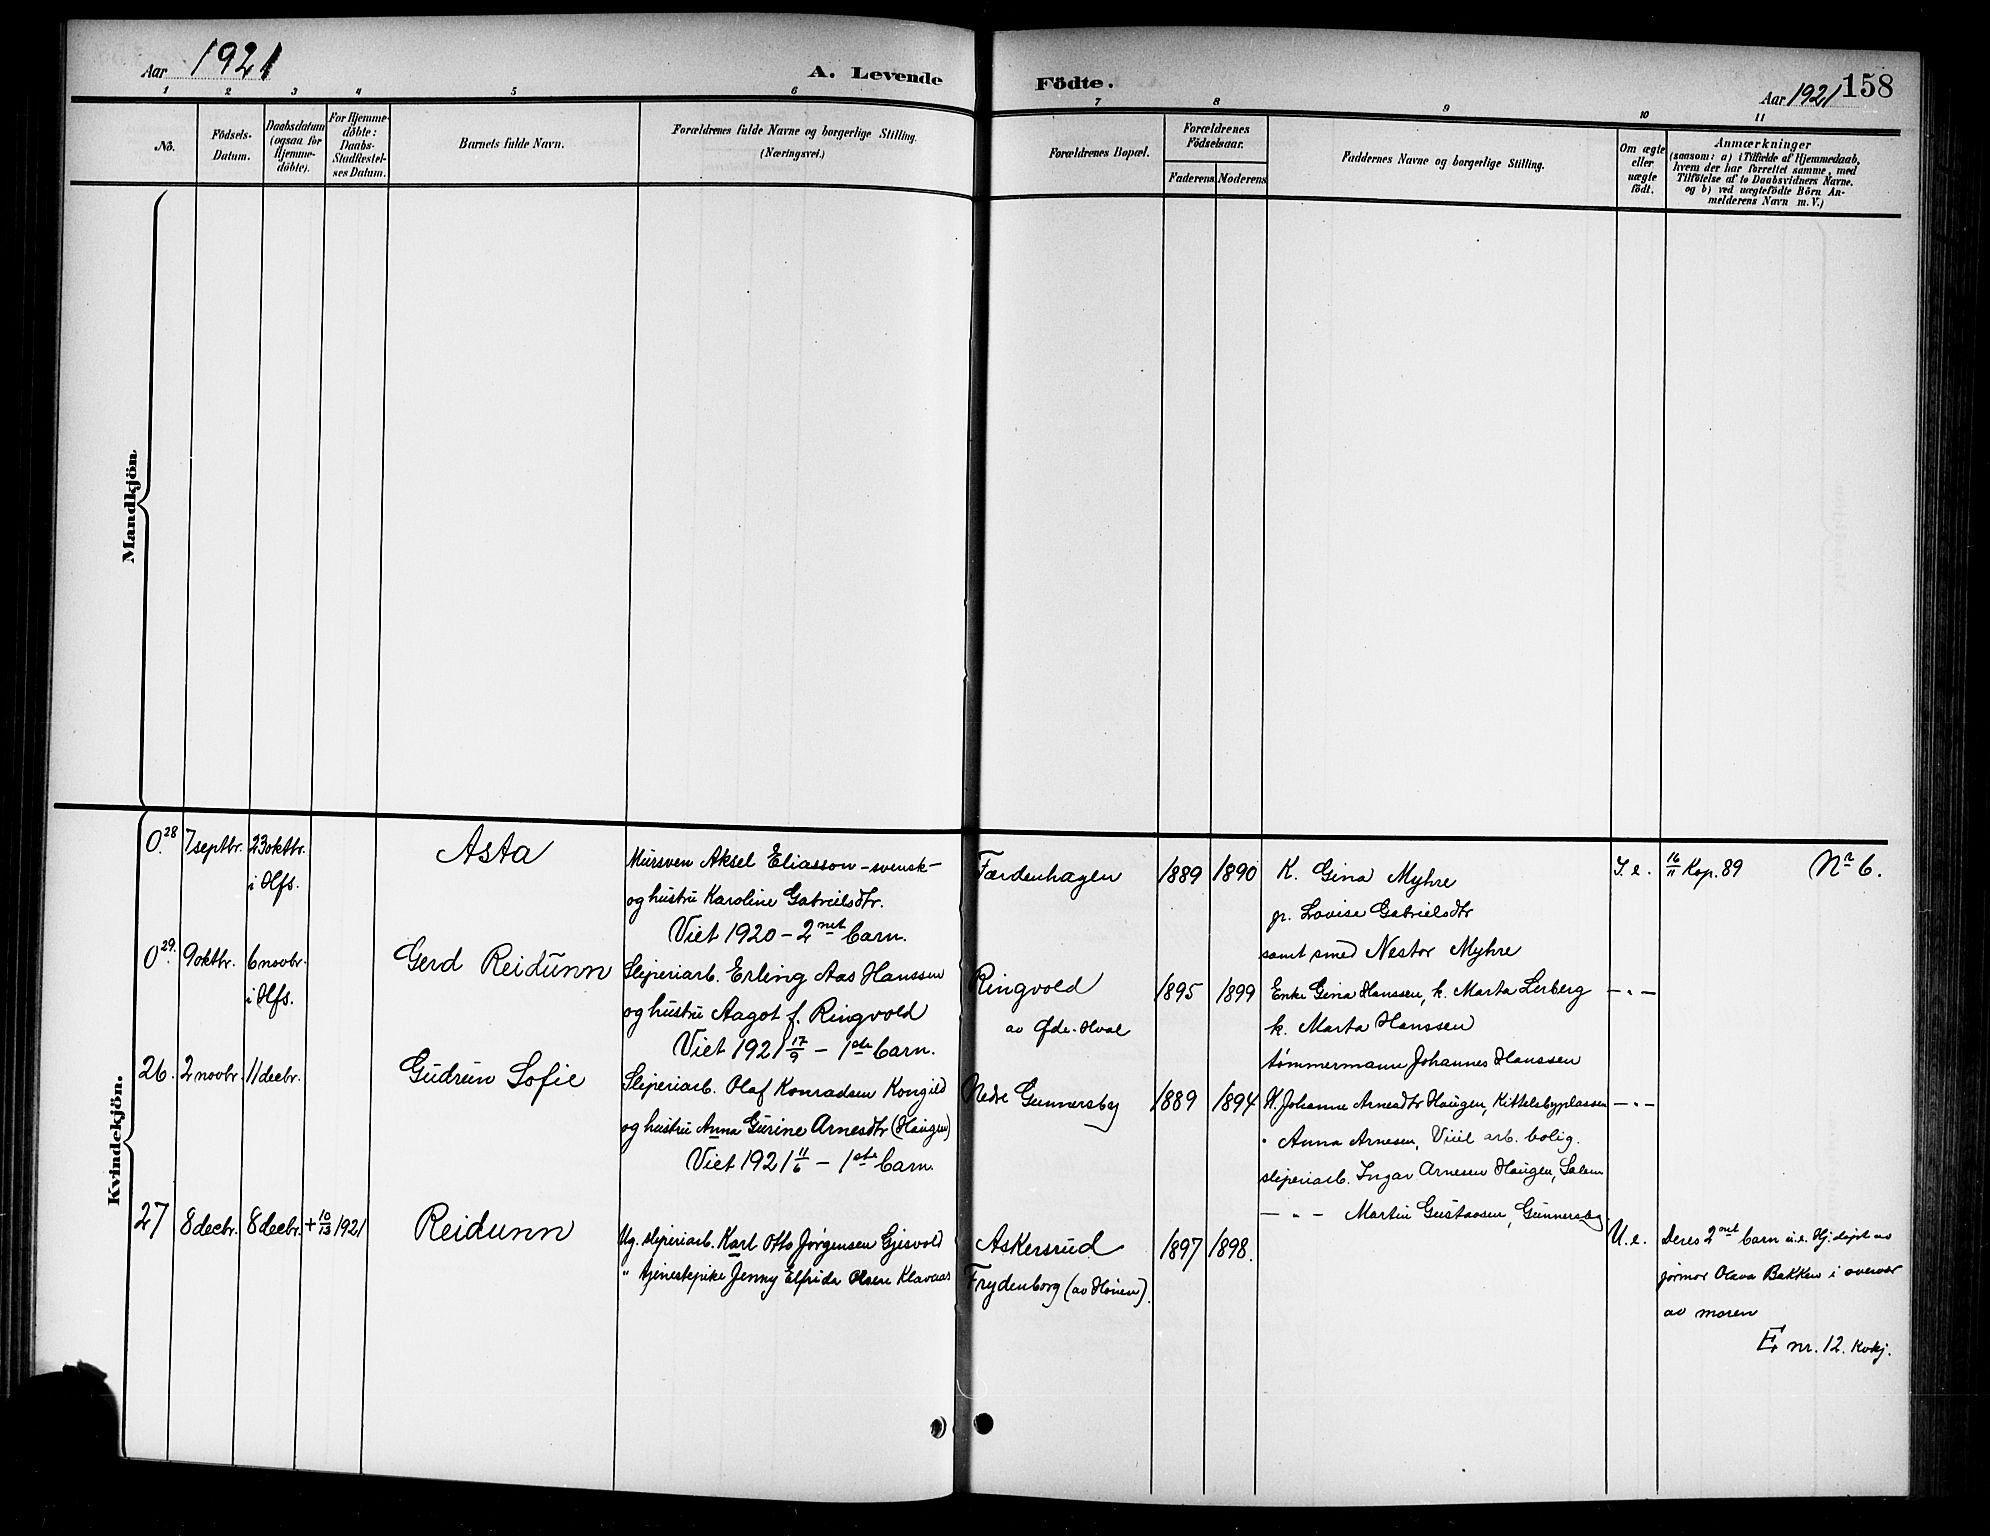 Aar 1921
A. Levende
Födte.
Aar 1921
158
1 2 3 4 5 6 7 8 9 10 11
No.
Födsels-
Datum.
Daabsdatum
(ogsaa for
Hjemme-
döbte).
For Hjemme-
döbte:
Daabs-
Stadfæstel-
ses Datum.
Barnets fulde Navn.
Forældrenes fulde Navne og borgerlige Stilling.
(Næringsvei.)
Forældrenes Bopæl.
Forældrenes
Födselsaar.
Faderens.
Moderens.
Faddernes Navne og borgerlige Stilling.
Om ægte
eller
uægte
födt.
Anmærkninger
(saasom: a) i Tilfælde af Hjemmedaab,
hvem der har forrettet samme, med
Tilföielse af to Daabsvidners Navne.
og b) ved uægtefödte Börn An-
melderens Navn m. V.)
Mandkjön.
Kvindekjön.
0.28
7 septbr.
23 oktbr.
i Hfs.
Asta
Mursven Aksel Eliasson - svensk -
og hustru Karoline Gabrielsdtr.
Viet 1920 - 2net barn.
Færdenhagen
1889
1890
K. Gina Myhre
pr. Lovise Gabrielsdtr
samt smed Nestor Myhre
I. e.
16/11 Kop. 89
No 6.
0.29.
9 oktbr.
6 novbr.
i Hfs.
Gerd Reidunn
Sliperiarb. Erling Aas Hanssen
og hustru Aagot f. Ringvold
Viet 1921 17/9 - 1ste barn.
Ringvold
av Øde-Hval
1895
1899
Enke Gina Hanssen, k. Marta Lerberg
k. Marta Hanssen
tømmermann Johannes Hanssen
— " —
26.
2 novbr.
11 decbr.
Gudrun Sofie
Sliperiarb. Olaf Konradsen Kongild
og hustru Anna Gurine Arnesdtr (Haugen)
Viet 1921 11/6 - 1ste barn.
Nedre Gunnersby
1889
1894
K. Johanne Arnesdtr Haugen, Kittelsbyplassen
" Anna Arnesen, Viul arb. bolig.
sliperiarb. Ingar Arnesen Haugen, Salem
— " — Martin Gustavsen, Gunnersby
— " —
27
8 decbr.
8 decbr.
+ 10/13 1921
Reidunn
Ug. sliperiarb. Karl Otto Jørgensen Gjesvold
" tjenestepike Jenny Elfrida Olsen Klavaas
Askersrud
Frydenborg (av Hønen).
1897
1898.
U. e.
Deres 2net barn u.e. Hj.døpt av
jormor Olava Bakken i overvær
av moren
E nr. 12. Kvkj.